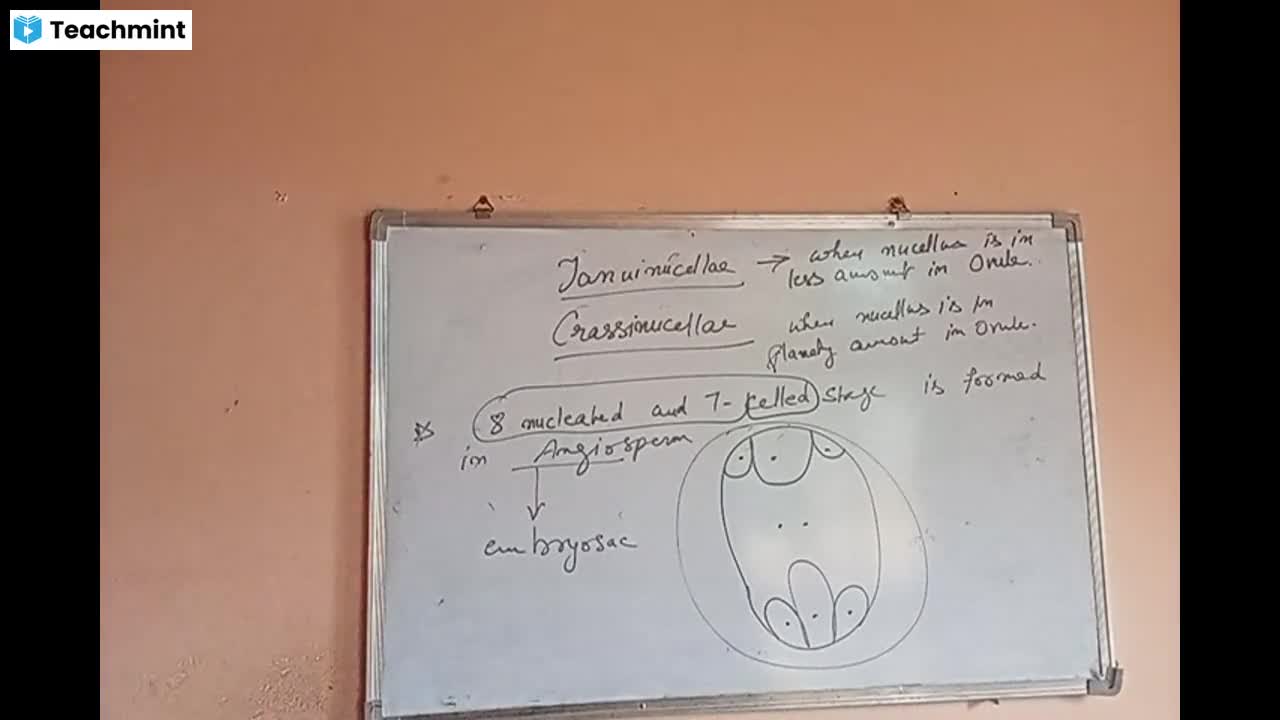 Teachmint
Tanuinucellae → when nucellus is in
less amount in Ovule.
Crassinucellae when nucellus is in
planety amount in Ovule.
8 nucleated and 7-celled stage is formed
in Angiosperm
embryosac